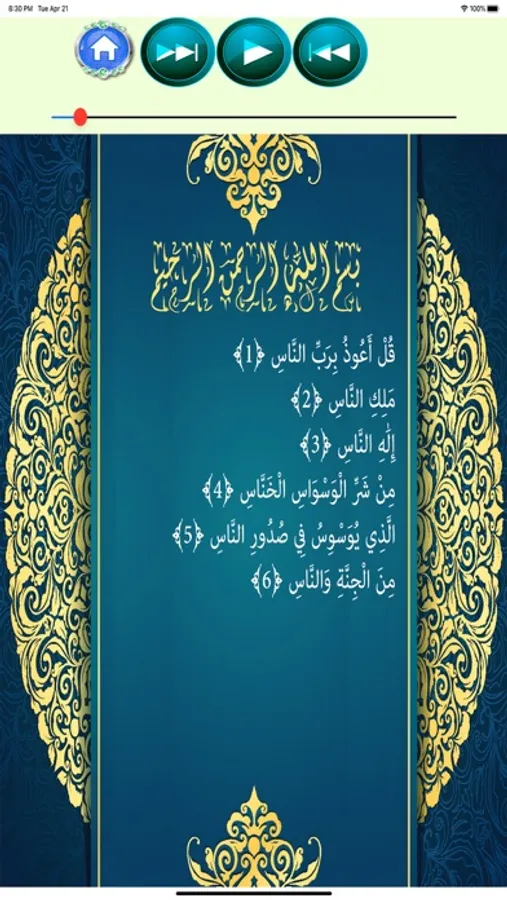 8:30 PM Tue Apr 21 100%
بسم الله الرحمن الرحيم
قُلْ أَعُوذُ بِرَبِّ النَّاسِ ﴿1﴾
مَلِكِ النَّاسِ ﴿2﴾
إِلَٰهِ النَّاسِ ﴿3﴾
مِنْ شَرِّ الْوَسْوَاسِ الْخَنَّاسِ ﴿4﴾
الَّذِي يُوَسْوِسُ فِي صُدُورِ النَّاسِ ﴿5﴾
مِنَ الْجِنَّةِ وَالنَّاسِ ﴿6﴾